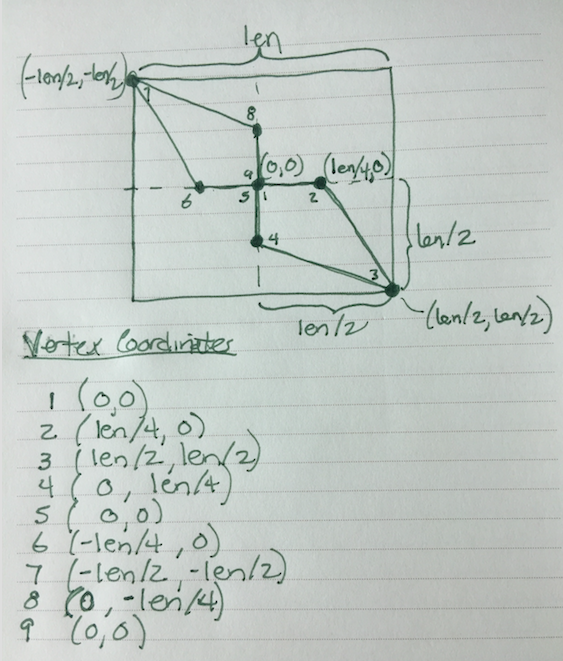 len
(-len/2, -len/2)
7
8
9 (0,0) (len/4,0)
6 5 1 2
4
len/2
3
(len/2, len/2)
len/2
Vertex Coordinates
1 (0,0)
2 (len/4, 0)
3 (len/2, len/2)
4 (0, len/4)
5 (0,0)
6 (-len/4, 0)
7 (-len/2, -len/2)
8 (0, -len/4)
9 (0,0)